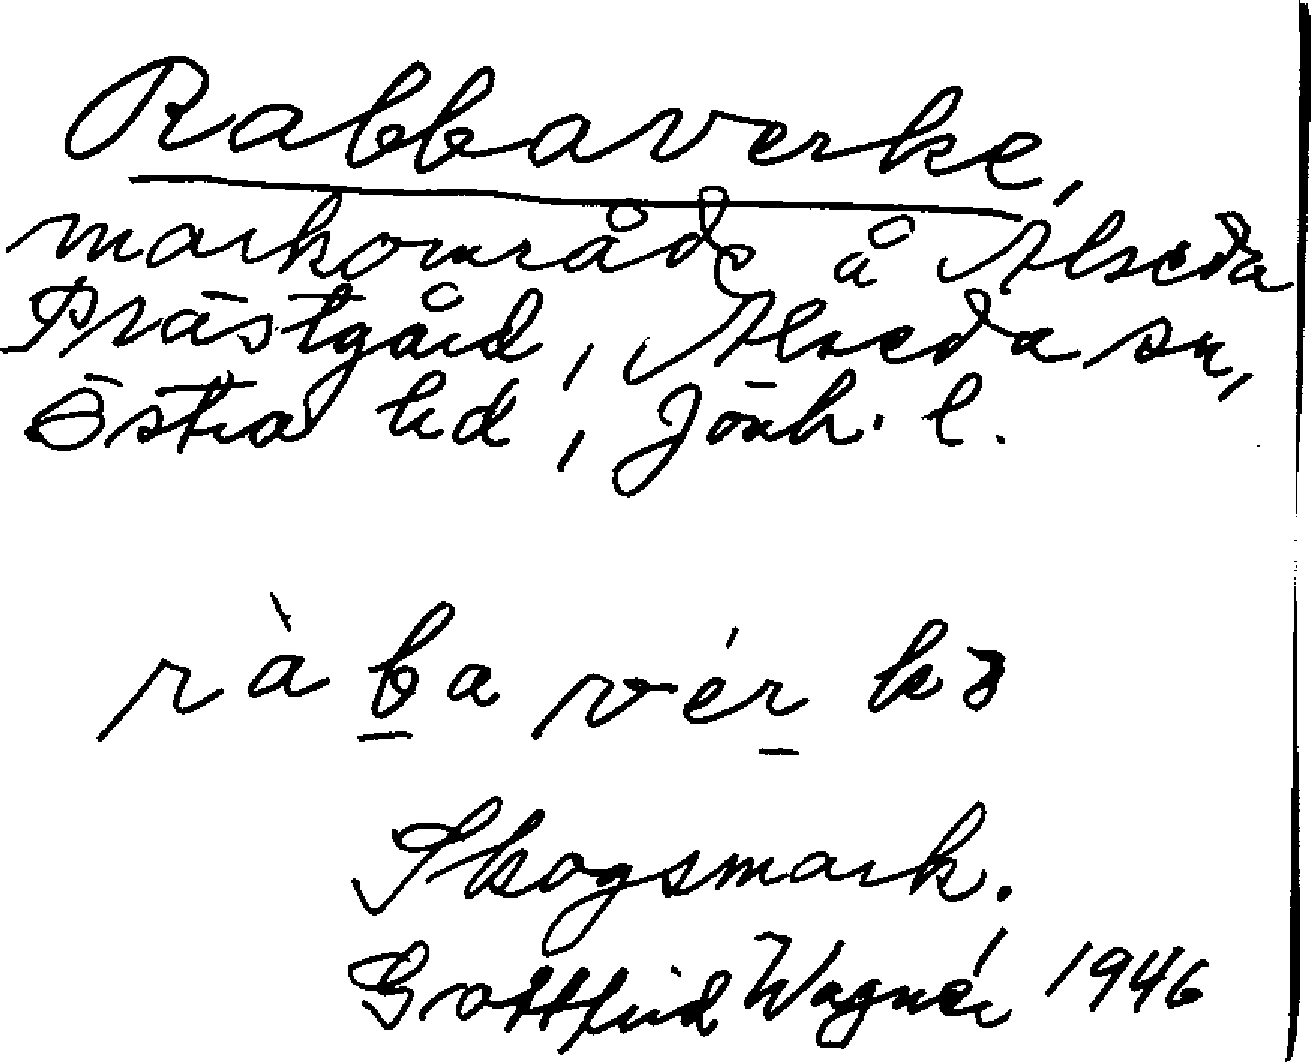 Rabbaverke,
markområde å Alseda
Prästgård, Alseda sn,
Östra hd, Jönk. l.
ràba vérkə
Skogsmark.
Gottfrid Wagnér 1946